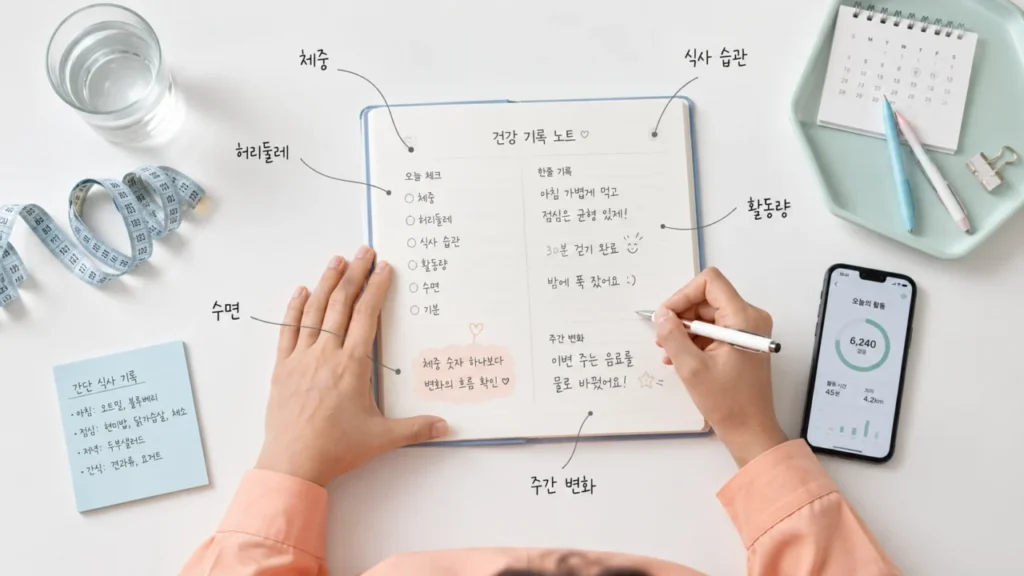 체중
식사 습관
허리둘레
활동량
수면
주간 변화
건강 기록 노트 ♡
오늘 체크
○ 체중
○ 허리둘레
○ 식사 습관
○ 활동량
○ 수면
○ 기분
체중 숫자 하나보다
변화의 흐름 확인 ♡
한줄 기록
아침 가볍게 먹고
점심은 균형 있제!
30분 걷기 완료
밤에 푹 잤어요 :)
주간 변화
이번 주는 음료를
물로 바꿨어요!
간단 식사 기록
• 아침: 오트밀, 블루베리
• 점심: 현미밥, 닭가슴살, 채소
• 저녁: 두부샐러드
• 간식: 견과류, 요거트
오늘의 활동
6,240
걸음
활동 시간
45분
거리
4.2km